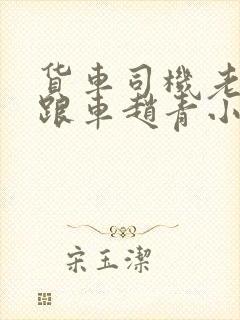 货车司機老
跟車趙青小
宋玉潔